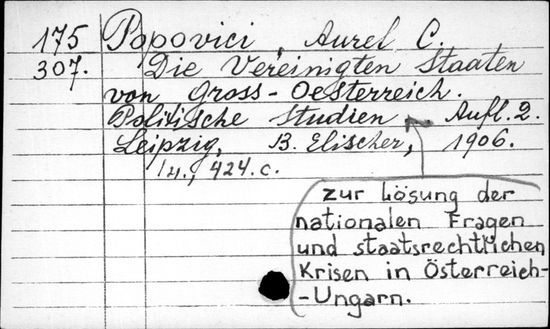 175 Popovici, Aurel C.
307. Die Vereinigten Staaten
von Gross-Oesterreich.
Politische Studien Aufl. 2.
Leipzig, B. Elischer, 1906.
1 л., 424 с.
zur Lösung der
nationalen Fragen
und staatsrechtlichen
Krisen in Österreich-
-Ungarn.